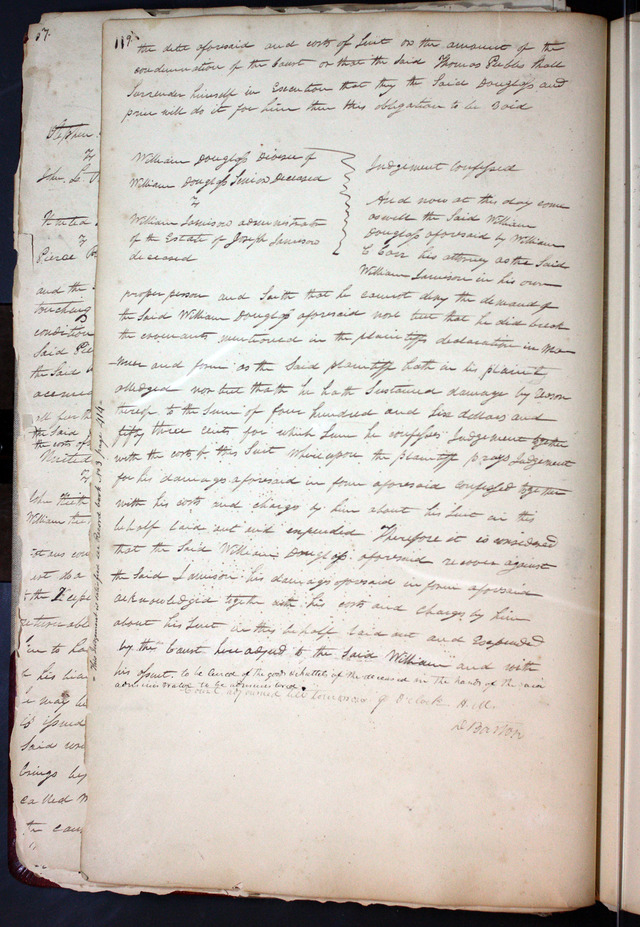 119
the debt aforesaid and costs of Suit or the amount of the
condemnation of the Court or that the Said Thomas Pubbs shall
Surrender himself in Execution that they the Said Douglass and
will do it for him then this obligation to be Void
William Douglass Divisee of
William Douglass Senior Deceased
vs
William Jamison administrator
of the Estate of Joseph Jamison
deceased
Judgement Confessed
And now at this day come
aswell the Said William
Douglass aforesaid by William
C Carr his attorney as the Said
William Jamison in his own
proper person and Saith that he cannot deny the demand of
the Said William Douglass aforesaid nor but that he did break
the covenants mentioned in the plaintiffs declaration in Ma=
=nner and form as the Said plaintiff hath in his plaint
alledged nor but that he hath Sustained damage by reason
thereof to the Sum of four hundred and Six dollars and
fifty three cents for which Sum he confesses Judgement together
with the costs of this Suit Whereupon the plaintiff prays Judgement
for his damages aforesaid in form aforesaid confessed together
with his costs and charges by him about his Suit in this
behalf laid out and expended Therefore it is considered
that the Said William Douglass aforesaid recover against
the Said Jamison his damages aforesaid in form aforesaid
acknowledged together with his costs and charges by him
about his Suit in this behalf laid out and Expended
by the Court here adjudged to the Said William and with
his assent. to be Levied of the goods & chattels of the deceased in the hands of the said
administrator to be administered.
Court adjourned till tomorrow 9 O'clock A.M.
D Barton
This Judgment is Satisfied see Record book No 3 page 414
37.
Stephen
vs
John C
United
vs
Pierce
and the
touching
condition
Said
the Said
all
the Said
the costs of
United
vs
John
William
not do a
to the
returnable
to ha
his
may be
issued
Said
brings
called
the cau